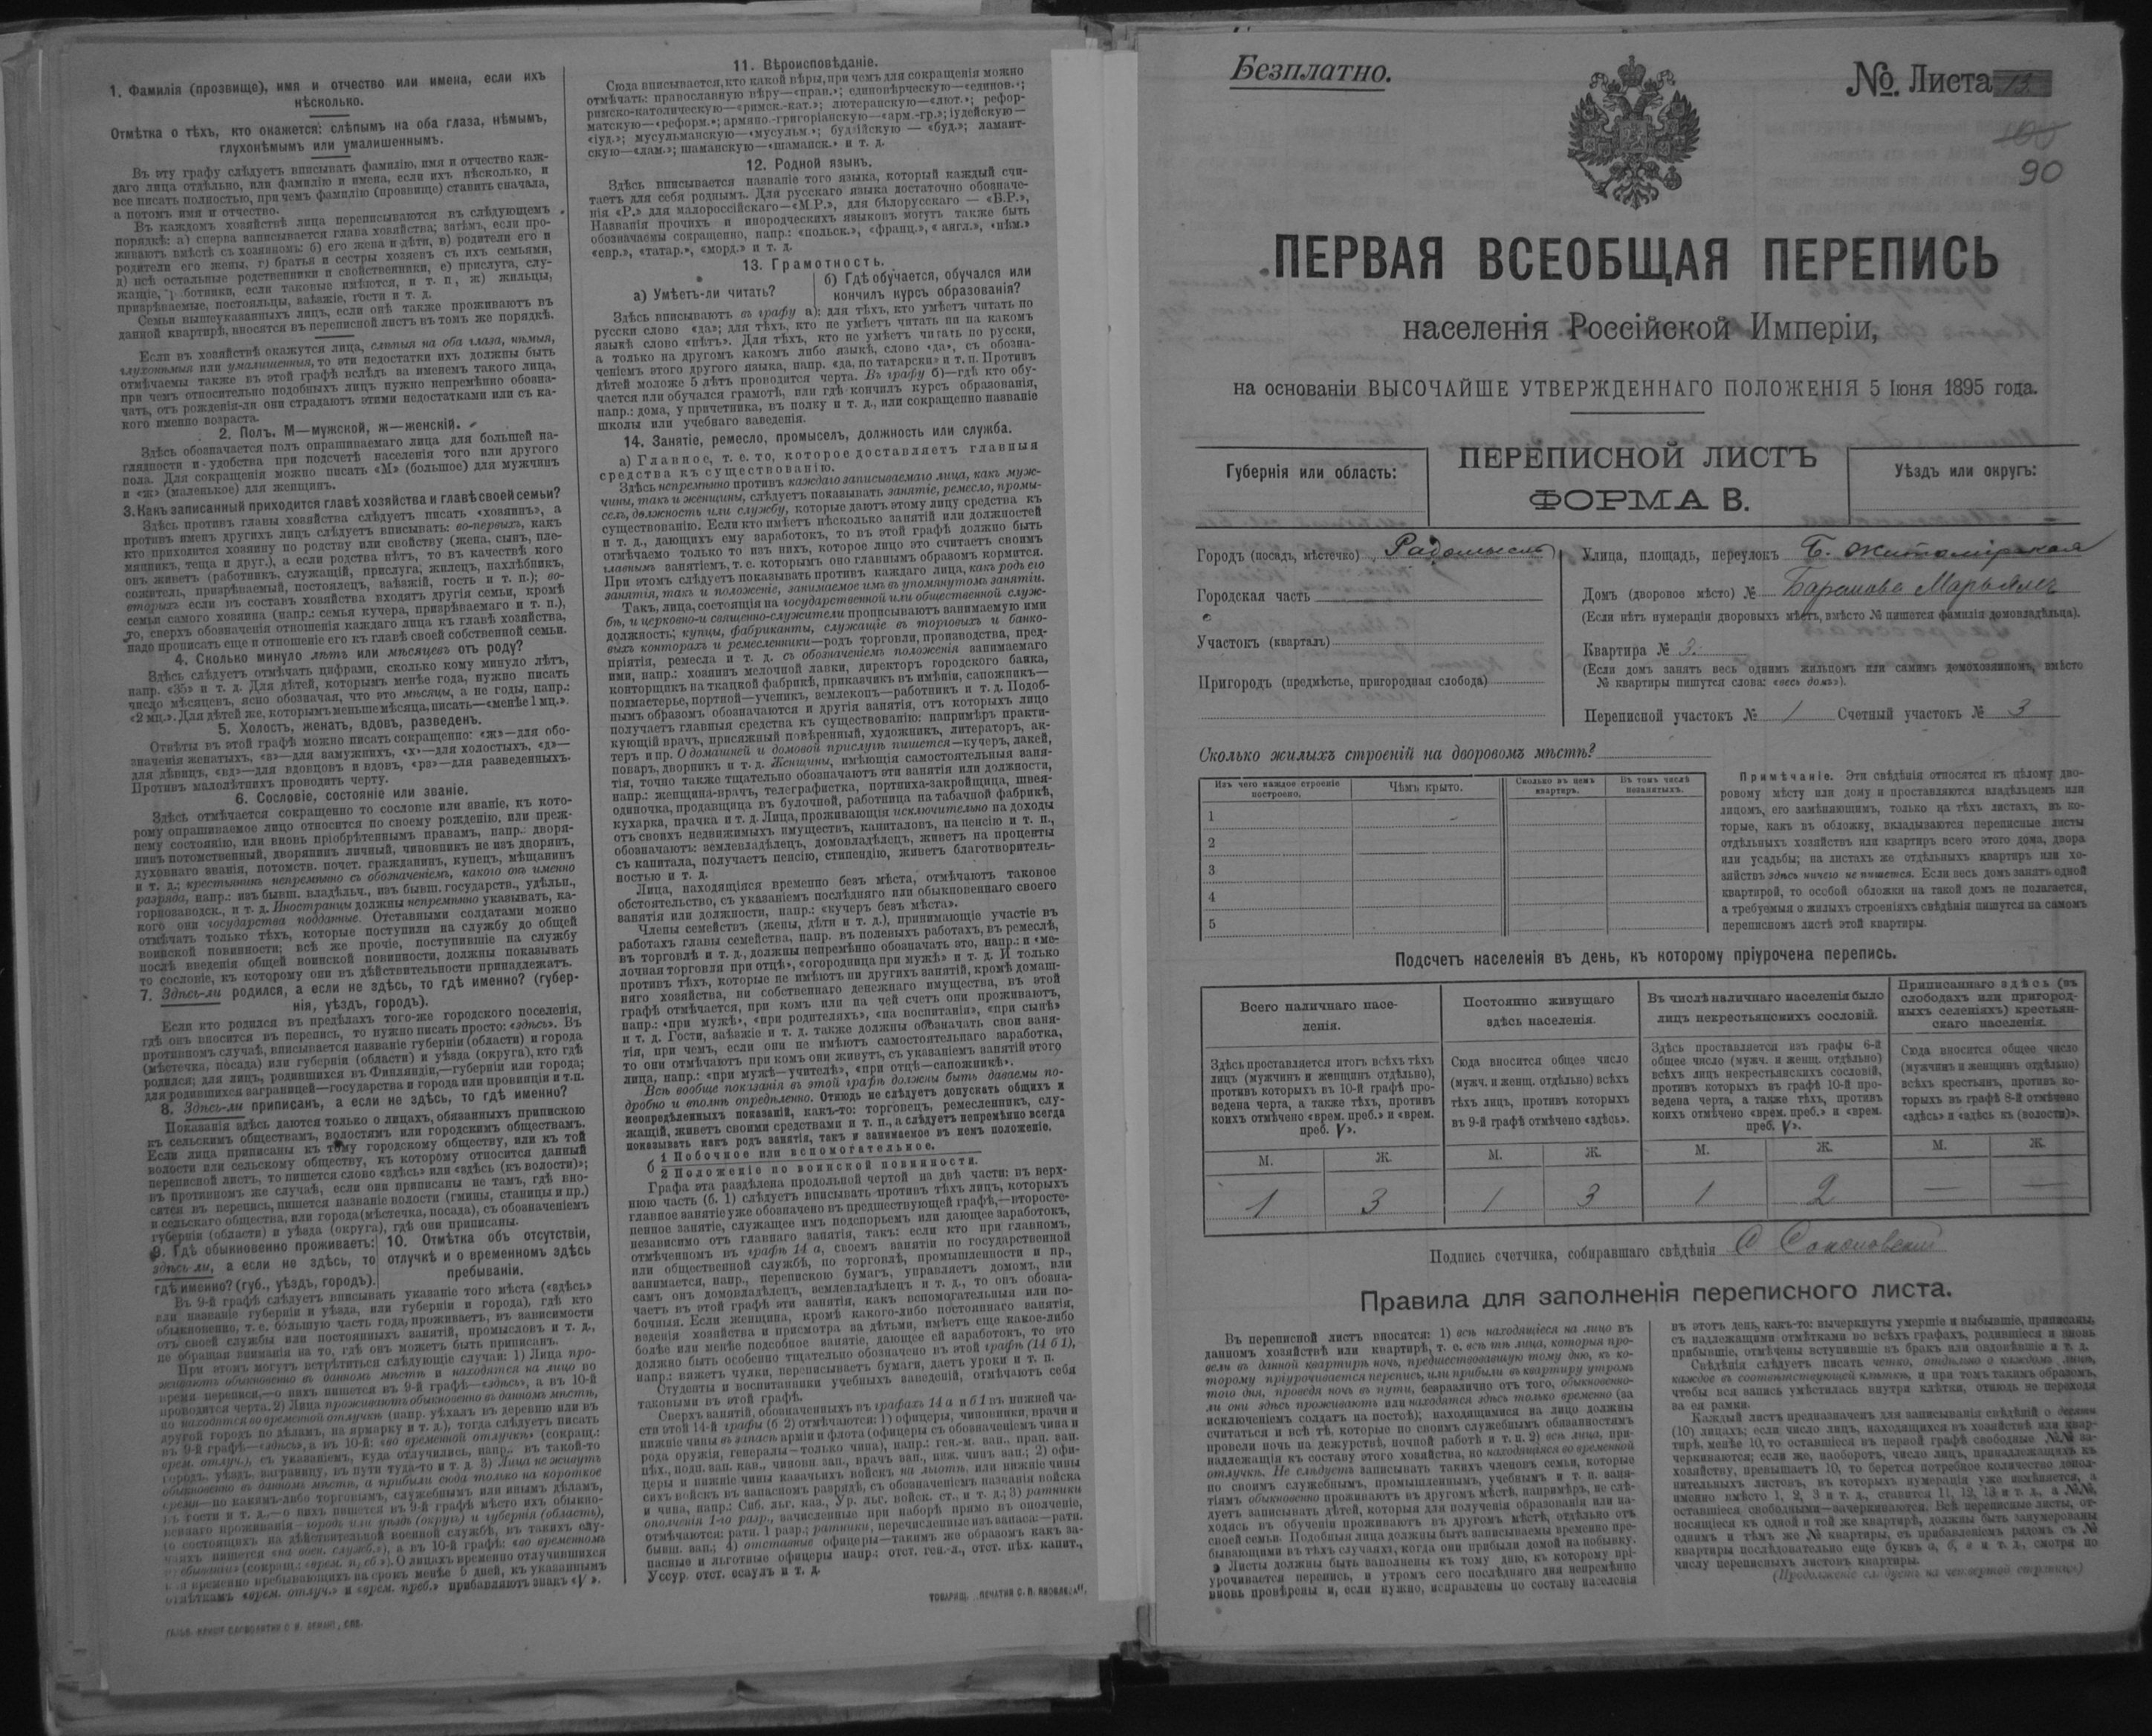 1. Фамилія (прозвище), имя и отчество или имена, если ихъ
нѣсколько.
Отмѣтка о тѣхъ, кто окажется: слѣпымъ на оба глаза, нѣмымъ,
глухонѣмымъ или умалишеннымъ.
Въ эту графу слѣдуетъ вписывать фамилію, имя и отчество каж-
даго лица отдѣльно, или фамилію и имена, если ихъ нѣсколько, и
все писать полностью, при чемъ фамилію (прозвище) ставить сначала,
а потомъ имя и отчество.
Въ каждомъ хозяйствѣ лица переписываются въ слѣдующемъ
порядкѣ: а) сперва записывается глава хозяйства; затѣмъ, если про-
живаютъ вмѣстѣ съ хозяиномъ: б) его жена и дѣти, в) родители его и
родители его жены, г) братья и сестры хозяевъ съ ихъ семьями,
д) всѣ остальные родственники и свойственники, е) прислуга, слу-
жащіе, работники, если таковые имѣются, и т. п., ж) жильцы,
призрѣваемые, постояльцы, заѣзжіе, гости и т. д.
Семьи вышеуказанныхъ лицъ, если онѣ также проживаютъ въ
данной квартирѣ, вносятся въ переписной листъ въ томъ же порядкѣ.
Если въ хозяйствѣ окажутся лица, слѣпыя на оба глаза, нѣмыя,
глухонѣмыя или умалишенныя, то эти недостатки ихъ должны быть
отмѣчаемы также въ этой графѣ вслѣдъ за именемъ такого лица,
при чемъ относительно подобныхъ лицъ нужно непремѣнно обозна-
чать, отъ рожденія-ли они страдаютъ этими недостатками или съ ка-
кого именно возраста.
2. Полъ. М—мужской, ж—женскій.
Здѣсь обозначается полъ опрашиваемаго лица для большей на-
глядности и удобства при подсчетѣ населенія того или другого
пола. Для сокращенія можно писать «М» (большое) для мужчинъ
и «ж» (маленькое) для женщинъ.
3. Какъ записанный приходится главѣ хозяйства и главѣ своей семьи?
Здѣсь противъ главы хозяйства слѣдуетъ писать «хозяинъ», а
противъ именъ другихъ лицъ слѣдуетъ вписывать: во-первыхъ, какъ
кто приходится хозяину по родству или свойству (жена, сынъ, пле-
мянникъ, теща и друг.), а если родства нѣтъ, то въ качествѣ кого
онъ живетъ (работникъ, служащій, прислуга, жилецъ, нахлѣбникъ,
сожитель, призрѣваемый, постоялецъ, заѣзжій, гость и т. п.); во-
вторыхъ если въ составъ хозяйства входятъ другія семьи, кромѣ
семьи самого хозяина (напр.: семья кучера, призрѣваемаго и т. п.),
то, сверхъ обозначенія отношенія каждаго лица къ главѣ хозяйства,
надо прописать еще и отношеніе его къ главѣ своей собственной семьи.
4. Сколько минуло лѣтъ или мѣсяцевъ отъ роду?
Здѣсь слѣдуетъ отмѣчать цифрами, сколько кому минуло лѣтъ,
напр. «35» и т. д. Для дѣтей, которымъ менѣе года, нужно писать
число мѣсяцевъ, ясно обозначая, что это мѣсяцы, а не годы, напр.:
«2 мц.». Для дѣтей же, которымъ меньше мѣсяца, писать—«менѣе 1 мц.».
5. Холостъ, женатъ, вдовъ, разведенъ.
Отвѣты въ этой графѣ можно писать сокращенно: «ж»—для обо-
значенія женатыхъ, «з»—для замужнихъ, «х»—для холостыхъ, «д»—
для дѣвицъ, «вд»—для вдовцовъ и вдовъ, «рз»—для разведенныхъ.
Противъ малолѣтнихъ проводить черту.
6. Сословіе, состояніе или званіе.
Здѣсь отмѣчается сокращенно то сословіе или званіе, къ кото-
рому опрашиваемое лицо относится по своему рожденію, или преж-
нему состоянію, или вновь пріобрѣтеннымъ правамъ, напр.: дворя-
нинъ потомственный, дворянинъ личный, чиновникъ не изъ дворянъ,
духовнаго званія, потомств. почет. гражданинъ, купецъ, мѣщанинъ
и т. д.; крестьянинъ непремѣнно съ обозначеніемъ, какого онъ именно
разряда, напр.: изъ бывш. владѣльч., изъ бывш. государств., удѣльн.,
горнозаводск., и т. д. Иностранцы должны непремѣнно указывать, ка-
кого они государства подданные. Отставными солдатами можно
отмѣчать только тѣхъ, которые поступили на службу до общей
воинской повинности; всѣ же прочіе, поступившіе на службу
послѣ введенія общей воинской повинности, должны показывать
то сословіе, къ которому они въ дѣйствительности принадлежатъ.
7. Здѣсь-ли родился, а если не здѣсь, то гдѣ именно? (губер-
нія, уѣздъ, городъ).
Если кто родился въ предѣлахъ того-же городского поселенія,
гдѣ онъ вносится въ перепись, то нужно писать просто: «здѣсь». Въ
противномъ случаѣ, вписывается названіе губерніи (области) и города
(мѣстечка, посада) или губерніи (области) и уѣзда (округа), кто гдѣ
родился; для лицъ, родившихся въ Финляндіи,—губерніи или города;
для родившихся заграницей—государства и города или провинціи и т.п.
8. Здѣсь-ли приписанъ, а если не здѣсь, то гдѣ именно?
Показанія здѣсь даются только о лицахъ, обязанныхъ припискою
къ сельскимъ обществамъ, волостямъ или городскимъ обществамъ.
Если лица приписаны къ тому городскому обществу, или къ той
волости или сельскому обществу, къ которому относится данный
переписной листъ, то пишется слово «здѣсь» или «здѣсь (къ волости)»;
въ противномъ же случаѣ, если они приписаны не тамъ, гдѣ вно-
сятся въ перепись, пишется названіе волости (гмины, станицы и пр.)
и сельскаго общества, или города (мѣстечка, посада), съ обозначеніемъ
губерніи (области) и уѣзда (округа), гдѣ они приписаны.
9. Гдѣ обыкновенно проживаетъ:
здѣсь-ли, а если не здѣсь, то
гдѣ именно? (губ., уѣздъ, городъ).
10. Отмѣтка объ отсутствіи,
отлучкѣ и о временномъ здѣсь
пребываніи.
Въ 9-й графѣ слѣдуетъ вписывать указаніе того мѣста («здѣсь»
или названіе губерніи и уѣзда, или губерніи и города), гдѣ кто
обыкновенно, т. е. бо́льшую часть года, проживаетъ, въ зависимости
отъ своей службы или постоянныхъ занятій, промысловъ и т. д.,
не обращая вниманія на то, гдѣ онъ можетъ быть приписанъ.
При этомъ могутъ встрѣтиться слѣдующіе случаи: 1) Лица про-
живаютъ обыкновенно въ данномъ мѣстѣ и находятся на лицо во
время переписи,—о нихъ пишется въ 9-й графѣ—«здѣсь», а въ 10-й
проводится черта. 2) Лица проживаютъ обыкновенно въ данномъ мѣстѣ,
но находятся во временной отлучкѣ (напр. уѣхалъ въ деревню или въ
другой городъ по дѣламъ, на ярмарку и т. д.), тогда слѣдуетъ писать
въ 9-й графѣ—«здѣсь», а въ 10-й: «во временной отлучкѣ» (сокращ.:
врем. отлуч.), съ указаніемъ, куда отлучились, напр., въ такой-то
городъ, уѣздъ, заграницу, въ пути туда-то и т. д. 3) Лица не живутъ
обыкновенно въ данномъ мѣстѣ, а прибыли сюда только на короткое
время—по какимъ-либо торговымъ, служебнымъ или инымъ дѣламъ,
въ гости и т. д.,—о нихъ пишется въ 9-й графѣ мѣсто ихъ обыкно-
веннаго проживанія—городъ или уѣздъ (округъ) и губернія (область),
(о состоящихъ на дѣйствительной военной службѣ, въ такихъ слу-
чаяхъ пишется «на воен. служб.»), а въ 10-й графѣ: «во временномъ
пребываніи» (сокращ.: «врем. преб»). О лицахъ временно отлучившихся
или временно пребывающихъ на срокъ менѣе 5 дней, къ указаннымъ
отмѣткамъ «врем. отлуч.» и «врем. преб.» прибавляютъ знакъ «V».
11. Вѣроисповѣданіе.
Сюда вписывается, кто какой вѣры, при чемъ для сокращенія можно
отмѣчать: православную вѣру—«прав.»; единовѣрческую—«единов.»;
римско-католическую—«римск.-кат.»; лютеранскую—«лют.»; рефор-
матскую—«реформ.»; армяно-григоріанскую—«арм.-гр.»; іудейскую—
«іуд.»; мусульманскую—«мусульм.»; буддійскую — «буд.»; ламаит-
скую—«лам.»; шаманскую—«шаманск.» и т. д.
12. Родной языкъ.
Здѣсь вписывается названіе того языка, который каждый счи-
таетъ для себя роднымъ. Для русскаго языка достаточно обозначе-
нія «Р.» для малороссійскаго—«М.Р.», для бѣлорусскаго — «Б.Р.»,
Названія прочихъ и инородческихъ языковъ могутъ также быть
обозначаемы сокращенно, напр.: «польск.», «франц.», «англ.», «нѣм.»
«евр.», «татар.», «морд.» и т. д.
13. Грамотность.
а) Умѣетъ-ли читать?
б) Гдѣ обучается, обучался или
кончилъ курсъ образованія?
Здѣсь вписываютъ въ графу а): для тѣхъ, кто умѣетъ читать по
русски слово «да»; для тѣхъ, кто не умѣетъ читать ни на какомъ
языкѣ слово «нѣтъ». Для тѣхъ, кто не умѣетъ читать по русски,
а только на другомъ какомъ либо языкѣ, слово «да», съ обозна-
ченіемъ этого другого языка, напр. «да, по татарски» и т. п. Противъ
дѣтей моложе 5 лѣтъ проводится черта. Въ графу б)—гдѣ кто обу-
чается или обучался грамотѣ, или гдѣ кончилъ курсъ образованія,
напр.: дома, у причетника, въ полку и т. д., или сокращенно названіе
школы или учебнаго заведенія.
14. Занятіе, ремесло, промыселъ, должность или служба.
а) Главное, т. е. то, которое доставляетъ главныя
средства къ существованію.
Здѣсь непремѣнно противъ каждаго записываемаго лица, какъ муж-
чины, такъ и женщины, слѣдуетъ показывать занятіе, ремесло, промы-
селъ, должность или службу, которые даютъ этому лицу средства къ
существованію. Если кто имѣетъ нѣсколько занятій или должностей
и т. д., дающихъ ему заработокъ, то въ этой графѣ должно быть
отмѣчаемо только то изъ нихъ, которое лицо это считаетъ своимъ
главнымъ занятіемъ, т. е. которымъ оно главнымъ образомъ кормится.
При этомъ слѣдуетъ показывать противъ каждаго лица, какъ родъ его
занятія, такъ и положеніе, занимаемое имъ въ упомянутомъ занятіи.
Такъ, лица, состоящія на государственной или общественной служ-
бѣ, и церковно-и священно-служители прописываютъ занимаемую ими
должность; купцы, фабриканты, служащіе въ торговыхъ и банко-
выхъ конторахъ и ремесленники—родъ торговли, производства, пред-
пріятія, ремесла и т. д. съ обозначеніемъ положенія занимаемаго
ими, напр.: хозяинъ мелочной лавки, директоръ городского банка,
конторщикъ на ткацкой фабрикѣ, приказчикъ въ имѣніи, сапожникъ—
подмастерье, портной—ученикъ, землекопъ—работникъ и т. д. Подоб-
нымъ образомъ обозначаются и другія занятія, отъ которыхъ лицо
получаетъ главныя средства къ существованію: напримѣръ практи-
кующій врачъ, присяжный повѣренный, художникъ, литераторъ, ак-
теръ и пр. О домашней и домовой прислугѣ пишется—кучеръ, лакей,
поваръ, дворникъ и т. д. Женщины, имѣющія самостоятельныя заня-
тія, точно также тщательно обозначаютъ эти занятія или должности,
напр.: женщина-врачъ, телеграфистка, портниха-закройщица, швея-
одиночка, продавщица въ булочной, работница на табачной фабрикѣ,
кухарка, прачка и т. д. Лица, проживающія исключительно на доходы
отъ своихъ недвижимыхъ имуществъ, капиталовъ, на пенсію и т. п.,
обозначаютъ: землевладѣлецъ, домовладѣлецъ, живетъ на проценты
съ капитала, получаетъ пенсію, стипендію, живетъ благотворитель-
ностью и т. д.
Лица, находящіяся временно безъ мѣста, отмѣчаютъ таковое
обстоятельство, съ указаніемъ послѣдняго или обыкновеннаго своего
занятія или должности, напр.: «кучеръ безъ мѣста».
Члены семействъ (жены, дѣти и т. д.), принимающіе участіе въ
работахъ главы семейства, напр. въ полевыхъ работахъ, въ ремеслѣ,
въ торговлѣ и т. д., должны непремѣнно обозначать это, напр.: и «ме-
лочная торговля при отцѣ», «огородница при мужѣ» и т. д. И только
противъ тѣхъ, которые не имѣютъ ни другихъ занятій, кромѣ домаш-
няго хозяйства, ни собственнаго денежнаго имущества, въ этой
графѣ отмѣчается, при комъ или на чей счетъ они проживаютъ,
напр.: «при мужѣ», «при родителяхъ», «на воспитаніи», «при сынѣ»
и т. д. Гости, заѣзжіе и т. д. также должны обозначать свои заня-
тія, при чемъ, если они не имѣютъ самостоятельнаго заработка,
то они отмѣчаютъ при комъ они живутъ, съ указаніемъ занятій этого
лица, напр.: «при мужѣ—учителѣ», «при отцѣ—сапожникѣ».
Всѣ вообще показанія въ этой графѣ должны быть даваемы по-
дробно и вполнѣ опредѣленно. Отнюдь не слѣдуетъ допускать общихъ и
неопредѣленныхъ показаній, какъ-то: торговецъ, ремесленникъ, слу-
жащій, живетъ своими средствами и т. п., а слѣдуетъ непремѣнно всегда
показывать какъ родъ занятія, такъ и занимаемое въ немъ положеніе.
б 1 Побочное или вспомогательное.
2 Положеніе по воинской повинности.
Графа эта раздѣлена продольной чертой на двѣ части: въ верх-
нюю часть (б. 1) слѣдуетъ вписывать противъ тѣхъ лицъ, которыхъ
главное занятіе уже обозначено въ предшествующей графѣ,—второсте-
пенное занятіе, служащее имъ подспорьемъ или дающее заработокъ,
независимо отъ главнаго занятія, такъ: если кто при главномъ,
отмѣченномъ въ графѣ 14 а, своемъ занятіи по государственной
или общественной службѣ, по торговлѣ, промышленности и пр.,
занимается, напр., перепискою бумагъ, управляетъ домомъ, или
самъ онъ домовладѣлецъ, землевладѣлецъ и т. д., то онъ обозна-
чаетъ въ этой графѣ эти занятія, какъ вспомогательныя или по-
бочныя. Если женщина, кромѣ какого-либо постояннаго занятія,
веденія хозяйства и присмотра за дѣтьми, имѣетъ еще какое-либо
болѣе или менѣе подсобное занятіе, дающее ей заработокъ, то это
должно быть особенно тщательно обозначено въ этой графѣ (14 б 1),
напр.: вяжетъ чулки, переписываетъ бумаги, даетъ уроки и т. п.
Студенты и воспитанники учебныхъ заведеній, отмѣчаютъ себя
таковыми въ этой графѣ.
Сверхъ занятій, обозначенныхъ въ графахъ 14 а и б 1 въ нижней ча-
сти этой 14-й графы (б 2) отмѣчаются: 1) офицеры, чиновники, врачи и
нижніе чины въ запасѣ арміи и флота (офицеры съ обозначеніемъ чина и
рода оружія, генералы—только чина), напр.: ген.-м. зап., прап. зап.
пѣх., подп. зап. кав., чиновн. зап., врачъ зап., ниж. чинъ зап.; 2) офи-
церы и нижніе чины казачьихъ войскъ на льготѣ, или нижніе чины
сихъ войскъ въ запасномъ разрядѣ, съ обозначеніемъ названія войска
и чина, напр.: Сиб. льг. каз., Ур. льг. войск. ст., и т. д.; 3) ратники
ополченія 1-го разр., зачисленные при наборѣ прямо въ ополченіе,
отмѣчаются: ратн. 1 разр.; ратники, перечисленные изъ запаса:—ратн.
бывш. зап.; 4) отставные офицеры—такимъ же образомъ какъ за-
пасные и льготные офицеры напр.: отст. ген.-л., отст. пѣх. капит.,
Уссур. отст. есаулъ и т. д.
Безплатно.
№ Листа 13.
100
90
ПЕРВАЯ ВСЕОБЩАЯ ПЕРЕПИСЬ
населенія Россійской Имперіи,
на основаніи ВЫСОЧАЙШЕ УТВЕРЖДЕННАГО ПОЛОЖЕНІЯ 5 Іюня 1895 года.
Губернія или область:
ПЕРЕПИСНОЙ ЛИСТЪ
ФОРМА В.
Уѣздъ или округъ:
Городъ (посадъ, мѣстечко) Радомысль
Городская часть
Участокъ (кварталъ)
Пригородъ (предмѣстье, пригородная слобода)
Улица, площадь, переулокъ Б. Житомірская
Домъ (дворовое мѣсто) №
(Если нѣтъ нумераціи дворовыхъ мѣстъ, вмѣсто № пишется фамилія домовладѣльца).
Квартира № 3.
(Если домъ занятъ весь однимъ жильцомъ или самимъ домохозяиномъ, вмѣсто
№ квартиры пишутся слова: «весь домъ»).
Переписной участокъ № 1 Счетный участокъ № 3
Сколько жилыхъ строеній на дворовомъ мѣстѣ?
Изъ чего каждое строеніе построено.
Чѣмъ крыто.
Сколько въ немъ квартиръ.
Въ томъ числѣ незанятыхъ.
1
2
3
4
5
Примѣчаніе. Эти свѣдѣнія относятся къ цѣлому дво-
ровому мѣсту или дому и проставляются владѣльцемъ или
лицомъ, его замѣняющимъ, только на тѣхъ листахъ, въ ко-
торые, какъ въ обложку, вкладываются переписные листы
отдѣльныхъ хозяйствъ или квартиръ всего этого дома, двора
или усадьбы; на листахъ же отдѣльныхъ квартиръ или хо-
зяйствъ здѣсь ничего не пишется. Если весь домъ занятъ одной
квартирой, то особой обложки на такой домъ не полагается,
а требуемыя о жилыхъ строеніяхъ свѣдѣнія пишутся на самомъ
переписномъ листѣ этой квартиры.
Подсчетъ населенія въ день, къ которому пріурочена перепись.
Всего наличнаго насе-
ленія.
Постоянно живущаго
здѣсь населенія.
Въ числѣ наличнаго населенія было
лицъ некрестьянскихъ сословій.
Приписаннаго здѣсь (въ
слободахъ или пригород-
ныхъ селеніяхъ) крестьян-
скаго населенія.
Здѣсь проставляется итогъ всѣхъ тѣхъ
лицъ (мужчинъ и женщинъ отдѣльно),
противъ которыхъ въ 10-й графѣ про-
ведена черта, а также тѣхъ, противъ
коихъ отмѣчено «врем. преб.» и «врем.
преб. V».
Сюда вносится общее число
(мужч. и женщ. отдѣльно) всѣхъ
тѣхъ лицъ, противъ которыхъ
въ 9-й графѣ отмѣчено «здѣсь».
Здѣсь проставляется изъ графы 6-й
общее число (мужч. и женщ. отдѣльно)
всѣхъ лицъ некрестьянскихъ сословій,
противъ которыхъ въ графѣ 10-й про-
ведена черта, а также тѣхъ, противъ
коихъ отмѣчено «врем. преб.» и «врем.
преб. V».
Сюда вносится общее число
(мужчинъ и женщинъ отдѣльно)
всѣхъ крестьянъ, противъ ко-
торыхъ въ графѣ 8-й отмѣчено
«здѣсь» и «здѣсь къ (волости)».
М. Ж. М. Ж. М. Ж. М. Ж.
1 3 1 3 1 2 — —
Подпись счетчика, собиравшаго свѣдѣнія
Правила для заполненія переписного листа.
Въ переписной листъ вносятся: 1) всѣ находящіеся на лицо въ
данномъ хозяйствѣ или квартирѣ, т. е. всѣ тѣ лица, которыя про-
вели въ данной квартирѣ ночь, предшествовавшую тому дню, къ ко-
торому пріурочивается перепись, или прибыли въ квартиру утромъ
того дня, проведя ночь въ пути, безразлично отъ того, обыкновенно-
ли они здѣсь проживаютъ или находятся здѣсь только временно (за
исключеніемъ солдатъ на постоѣ); находящимися на лицо должны
считаться и всѣ тѣ, которые по своимъ служебнымъ обязанностямъ
провели ночь на дежурствѣ, ночной работѣ и т. п. 2) всѣ лица, при-
надлежащія къ составу этого хозяйства, но находящіяся во временной
отлучкѣ. Не слѣдуетъ записывать такихъ членовъ семьи, которые
по своимъ служебнымъ, промышленнымъ, учебнымъ и т. п. заня-
тіямъ обыкновенно проживаютъ въ другомъ мѣстѣ, напримѣръ, не слѣ-
дуетъ записывать дѣтей, которыя для полученія образованія или на-
ходясь въ обученіи проживаютъ въ другомъ мѣстѣ, отдѣльно отъ
своей семьи. Подобныя лица должны быть записываемы временно пре-
бывающими въ тѣхъ случаяхъ, когда они прибыли домой на побывку.
Листы должны быть заполнены къ тому дню, къ которому прі-
урочивается перепись, и утромъ сего послѣдняго дня непремѣнно
вновь провѣрены и, если нужно, исправлены по составу населенія
въ этотъ день, какъ-то: вычеркнуты умершіе и выбывшіе, приписаны,
съ надлежащими отмѣтками во всѣхъ графахъ, родившіеся и вновь
прибывшіе, отмѣчены вступившіе въ бракъ или овдовѣвшіе и т. д.
Свѣдѣнія слѣдуетъ писать четко, отдѣльно о каждомъ лицѣ,
каждое въ соотвѣтствующей клѣткѣ, и при томъ такимъ образомъ,
чтобы вся запись умѣстилась внутри клѣтки, отнюдь не переходя
за ея рамки.
Каждый листъ предназначенъ для записыванія свѣдѣній о десяти
(10) лицахъ; если число лицъ, находящихся въ хозяйствѣ или квар-
тирѣ, менѣе 10, то оставшіеся въ первой графѣ свободные №№ за-
черкиваются; если же, наоборотъ, число лицъ, принадлежащихъ къ
хозяйству, превышаетъ 10, то берется потребное количество допол-
нительныхъ листовъ, въ которыхъ нумерація уже измѣняется, а
именно вмѣсто 1, 2, 3 и т. д., ставится 11, 12, 13 и т. д., а №№,
оставшіеся свободными—зачеркиваются. Всѣ переписные листы, от-
носящіеся къ одной и той же квартирѣ, должны быть занумерованы
однимъ и тѣмъ же № квартиры, съ прибавленіемъ рядомъ съ №
квартиры послѣдовательно еще буквъ а, б, в и т. д., смотря по
числу переписныхъ листовъ квартиры.
(Продолженіе слѣдуетъ на четвертой страницѣ)